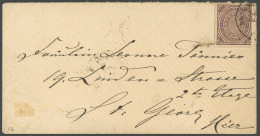 Fräulein Leonore Tönnies
19. Linden = Strasse
2te Etage
St. Georg
Hier